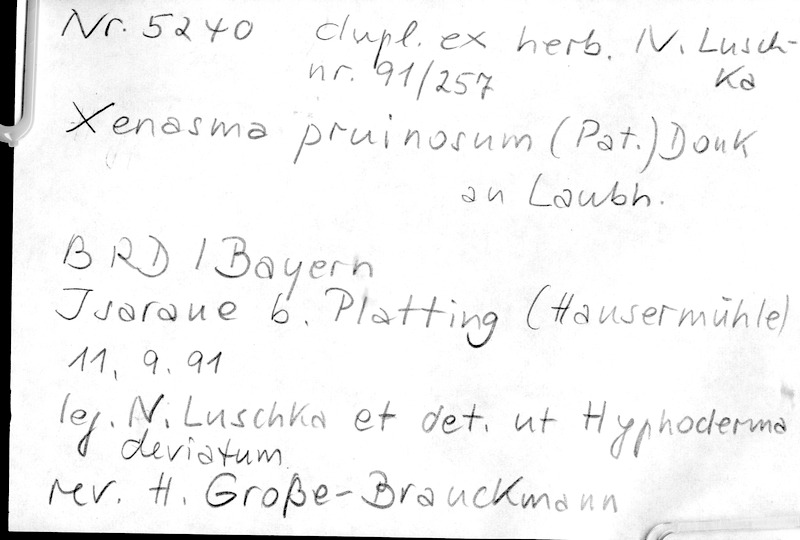 Nr. 5240 dupl. ex herb. N. Lusch-
nr. 91/257 Ka
Xenasma pruinosum (Pat.) Donk
an Laubh.
BRD / Bayern
Isaraue b. Platting (Hausermühle)
11. 9. 91
leg. N. Luschka et det. ut Hyphoderma
deviatum
rev. H. Große-Brauckmann